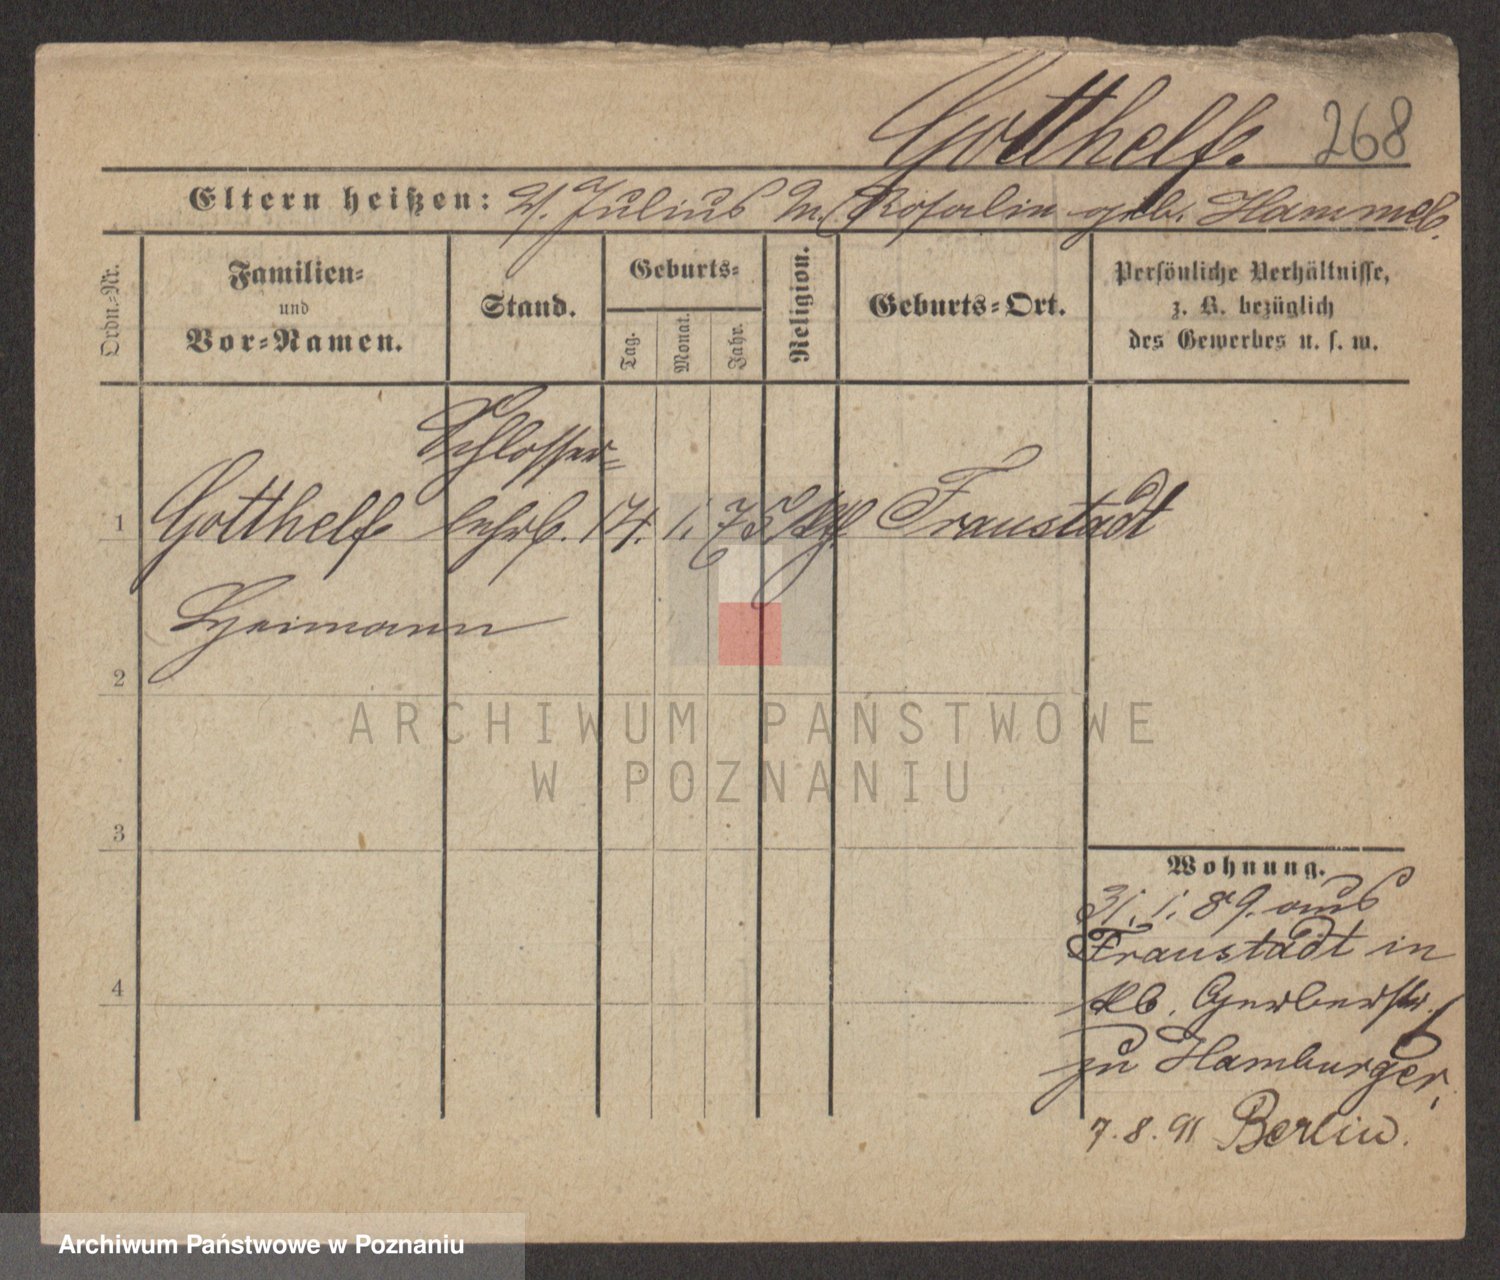 Gotthelf. 268
Eltern heißen: V. Julius M. Rosalin geb. Hammel.
Ordn.-Nr.
Familien-
und
Vor-Namen.
Stand.
Geburts-
Tag.
Monat.
Jahr.
Religion.
Geburts-Ort.
Persönliche Verhältnisse,
z. B. bezüglich
des Gewerbes u. s. w.
Schlosser-
1 Gotthelf lehrl. 14. 1. 75 Fraustadt
Heimann
2
3
4
Wohnung.
31. 1. 89. aus
Fraustadt in
Gerberstr. 6
zu Hamburger,
7. 8. 91 Berlin.
ARCHIWUM PAŃSTWOWE
W POZNANIU
Archiwum Państwowe w Poznaniu